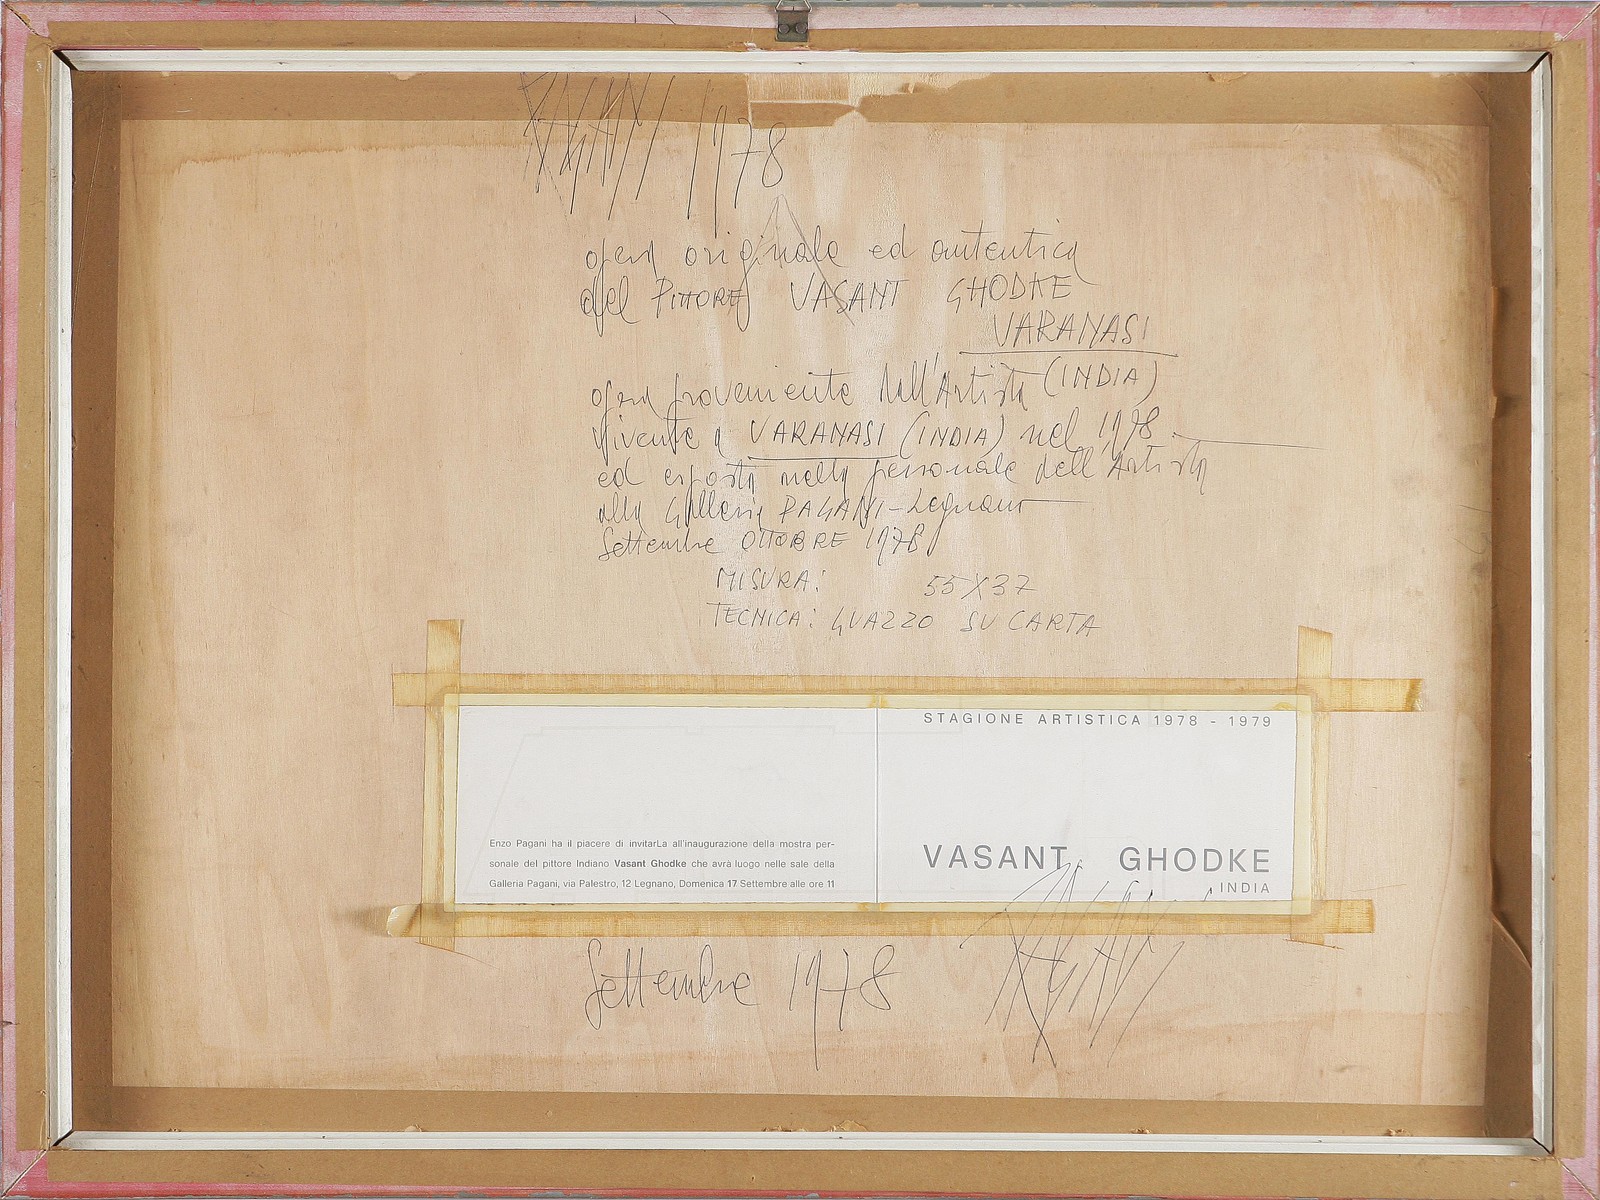 PAGANI 1978
opera originale ed autentica
del PITTORE VASANT GHODKE
VARANASI
(INDIA)
opera proveniente dall'Artista
vivente a VARANASI (INDIA) nel 1978
ed esposta nella personale dell'Artista
alla Galleria PAGANI - Legnano
Settembre OTTOBRE 1978
MISURA: 55X37
TECNICA: GUAZZO SU CARTA
Enzo Pagani ha il piacere di invitarLa all'inaugurazione della mostra per-
sonale del pittore Indiano Vasant Ghodke che avrà luogo nelle sale della
Galleria Pagani, via Palestro, 12 Legnano, Domenica 17 Settembre alle ore 11
STAGIONE ARTISTICA 1978 - 1979
VASANT GHODKE
INDIA
Settembre 1978 PAGANI